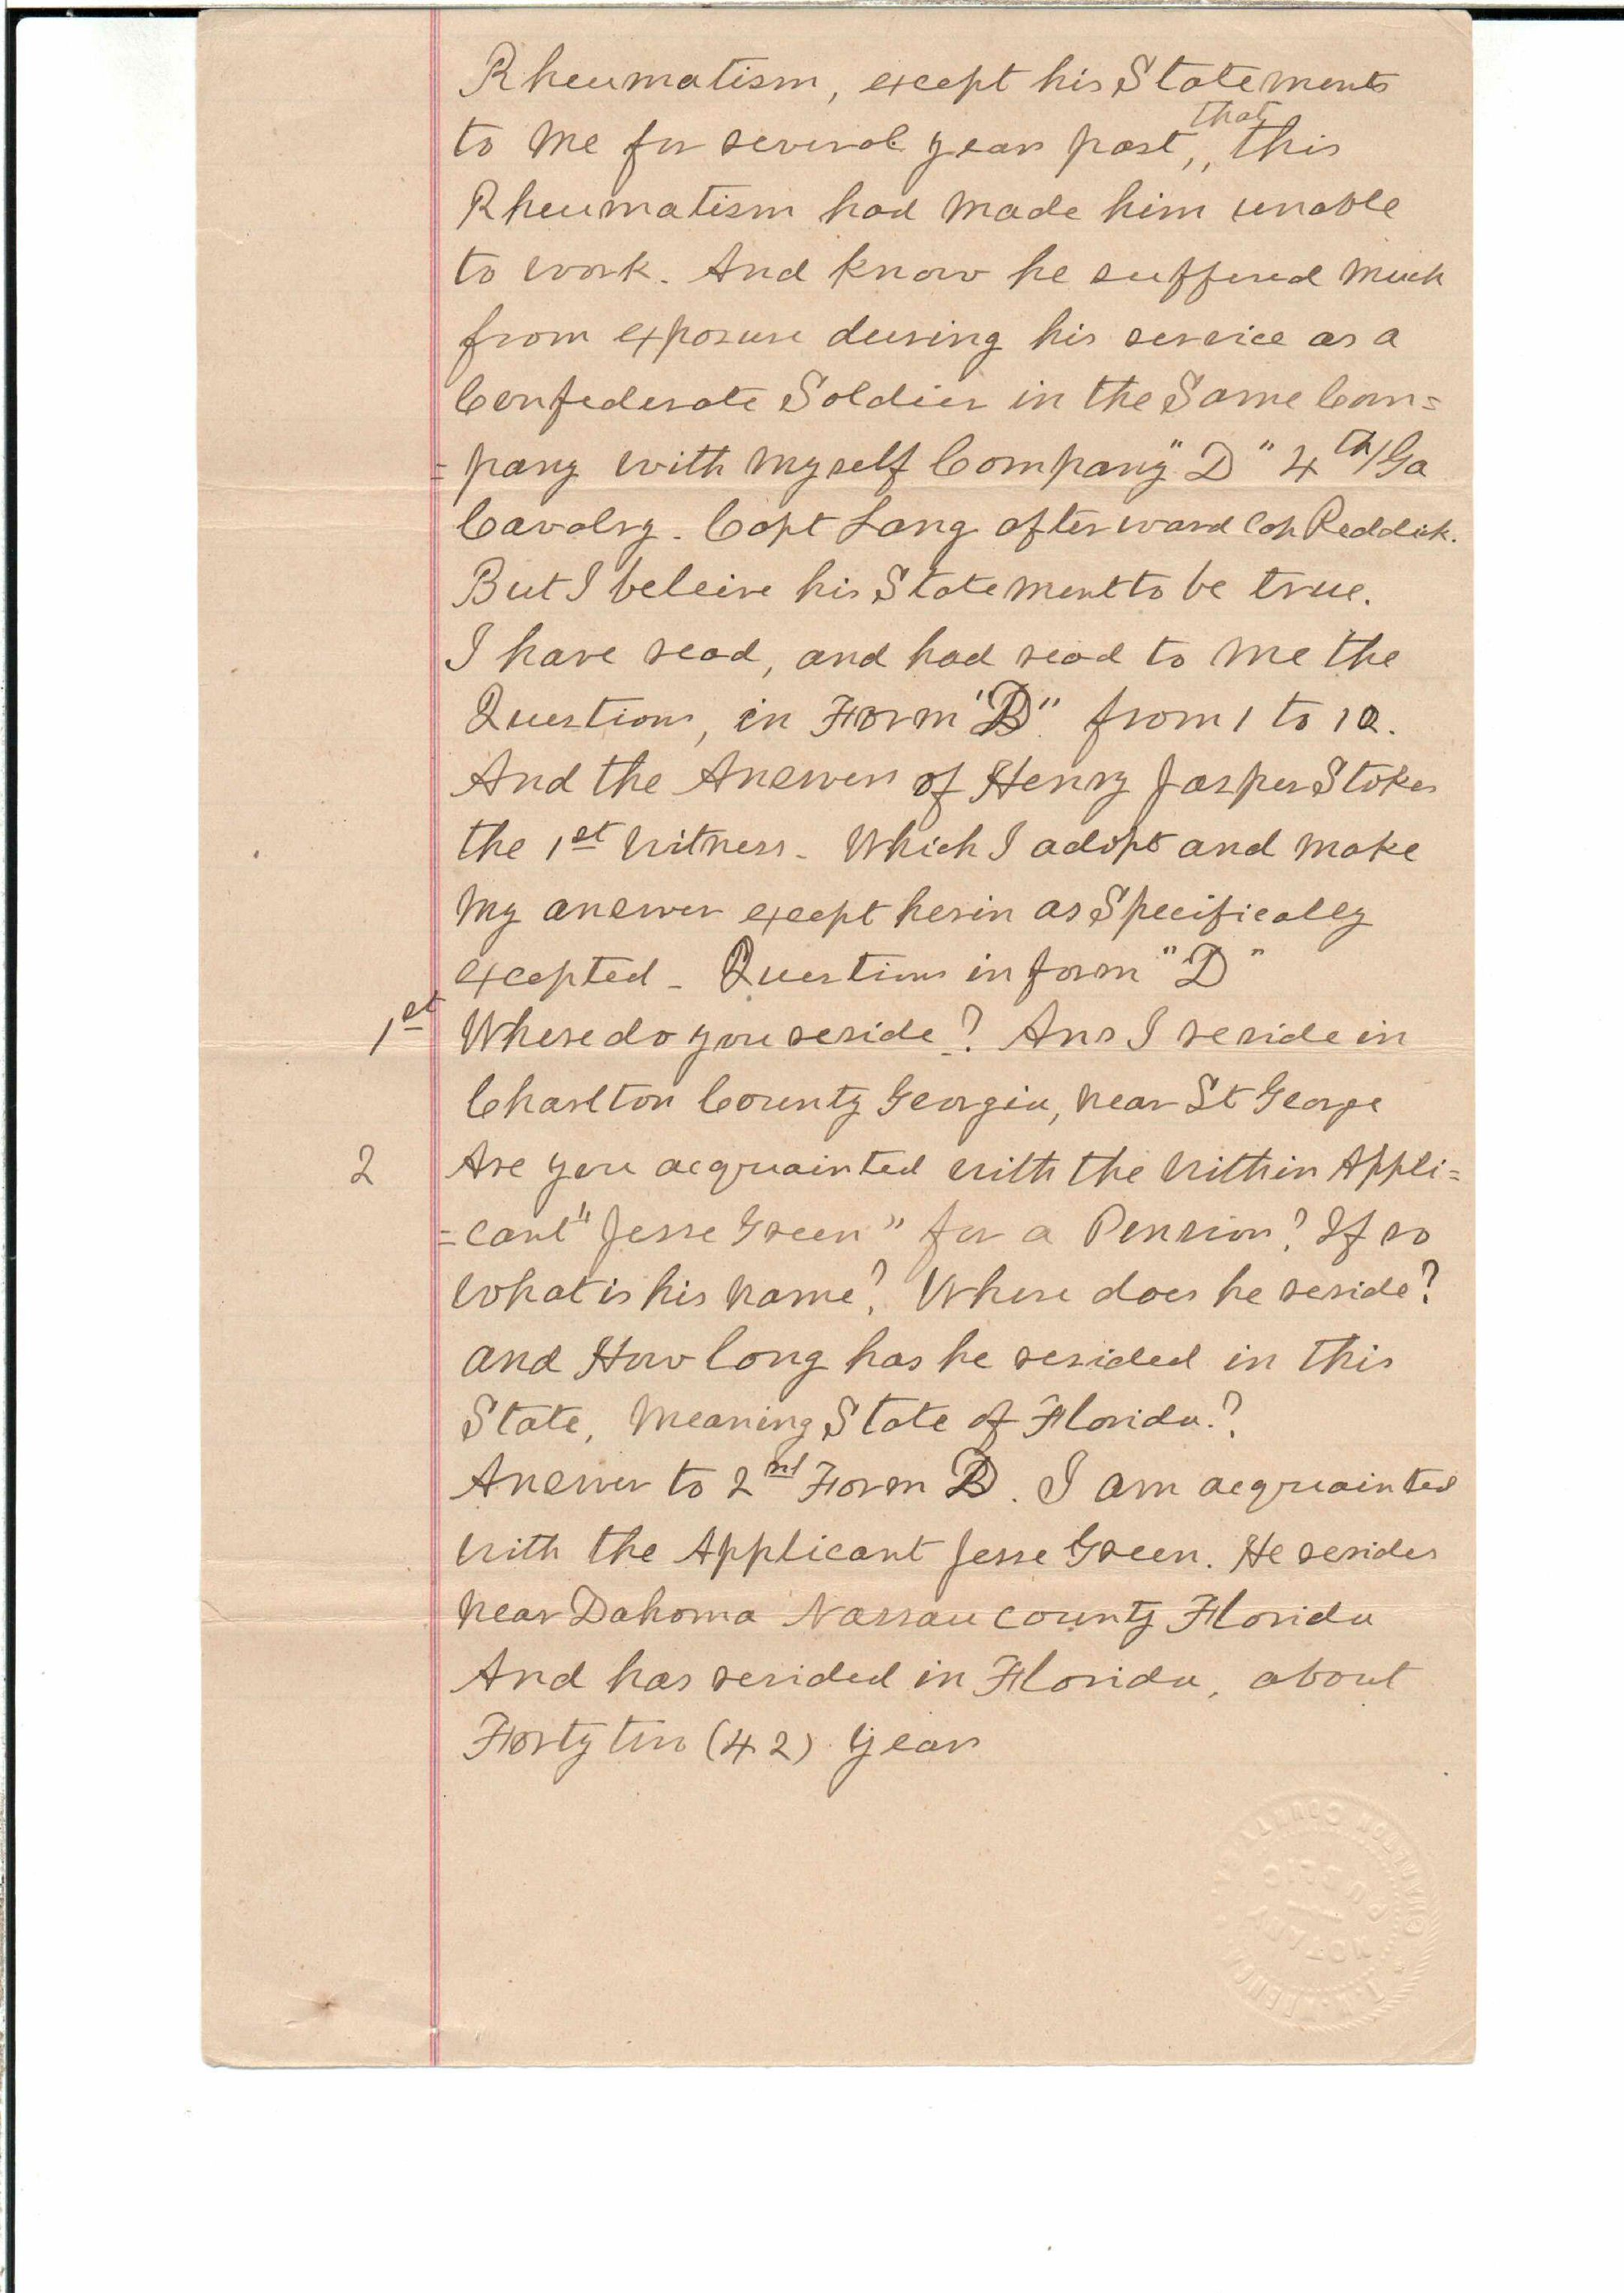 Rheumatism, except his Statements
that
to me for several years past, this
Rheumatism had made him unable
to work. And know he suffered much
from exposure during his service as a
Confederate Soldier in the Same Com=
=pany with myself Company "D" 4th/Ga
Cavalry. Capt Lang afterward Cap Reddick.
But I beleive his Statement to be true.
I have read, and had read to me the
Questions, in Form "B" from 1 to 12.
And the Answers of Henry Jasper Stokes
the 1st Witness. Which I adopt and make
my answer except herin as Specifically
excepted - Questions in form "D"
1st Where do you reside? Ans I reside in
Charlton County Georgia, near St George
2 Are you acquainted with the within Appli=
=cant "Jesse Green" for a Pension? If so
What is his name? Where does he reside?
and How long has he resided in this
State, Meaning State of Florida.?
Answer to 2nd Form B. I am acquainted
with the Applicant Jesse Green. He resides
near Dahoma Nassau County Florida
And has resided in Florida, about
Forty two (42) years